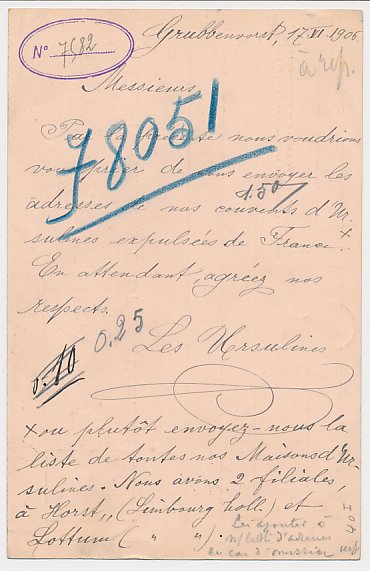 N° 7682
Grubbenvorst, 17 VI 1906
à rép.
Messieurs,
78051
Par la présente nous voudrions
vous prier de nous envoyer les
1.50
adresses de nos couvents d'Ur-
sulines expulsées de France.+
En attendant, agréez nos
respects.
0.25
Les Ursulines
0.10
+ ou plutôt envoyez-nous la
liste de toutes nos Maisons d'Ur-
sulines. Nous avons 2 filiales,
à Horst, (Limbourg holl.) et
Lottum ( " " ).
Les ajouter à
d'adresses
en cas d'omission